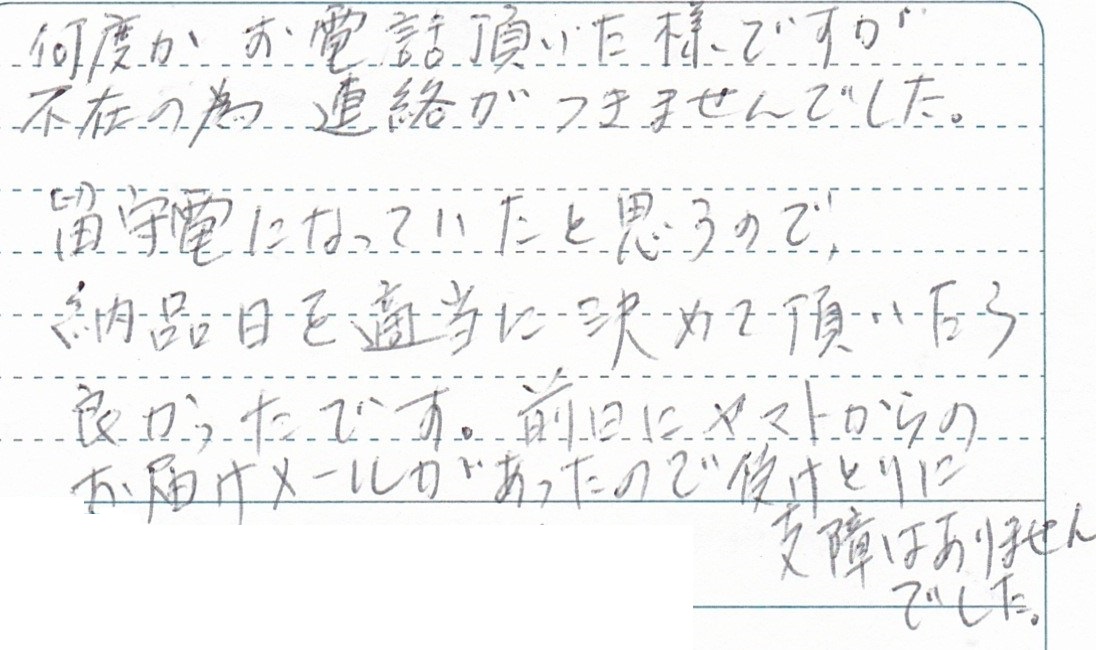 何度かお電話頂いた様ですが
不在の為 連絡がつきませんでした。
留守電になっていたと思うので、
納品日を適当に決めて頂いたら
良かったです。前日にヤマトからの
お届けメールがあったので受けとりに
支障はありません
でした。